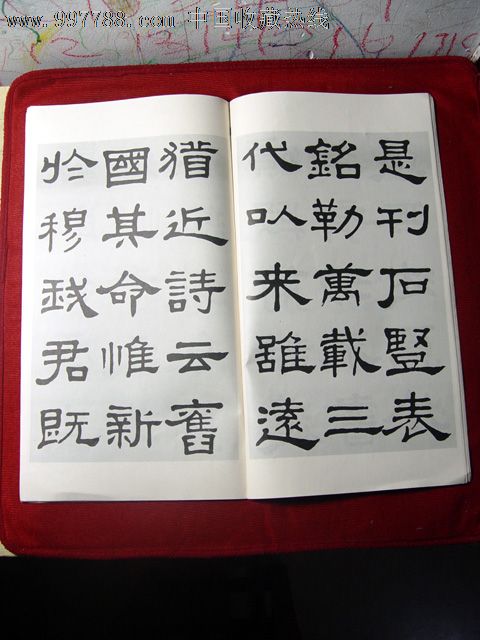 www.997788.com 中国收藏热线
是刊石豎表
銘勒萬載三
代以来雖遠
猶近詩云舊
國其命惟新
於穆我君既